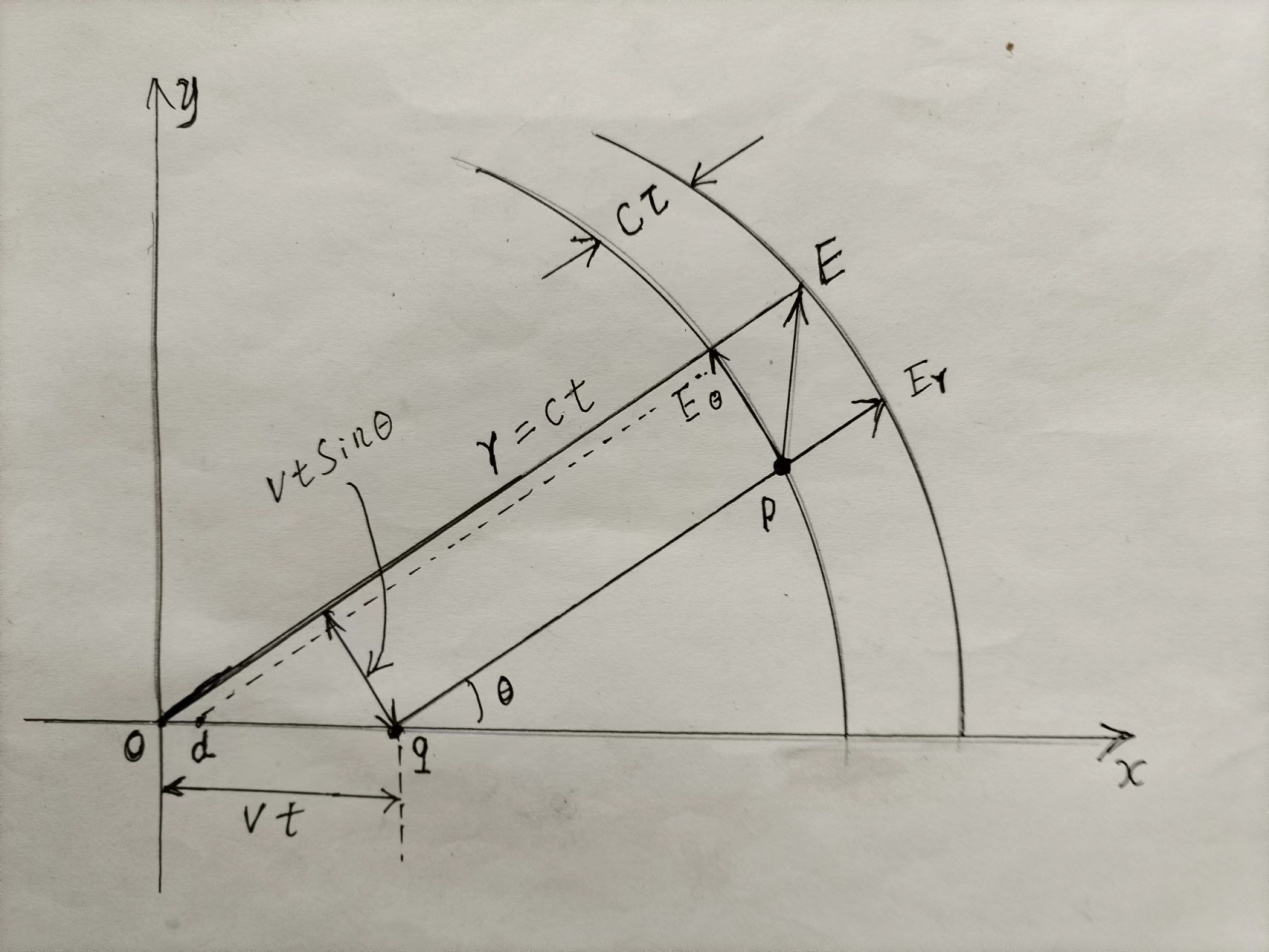 y
Cτ
E
Er
Eθ
r = ct
vt sinθ
P
θ
O
d
q
x
vt